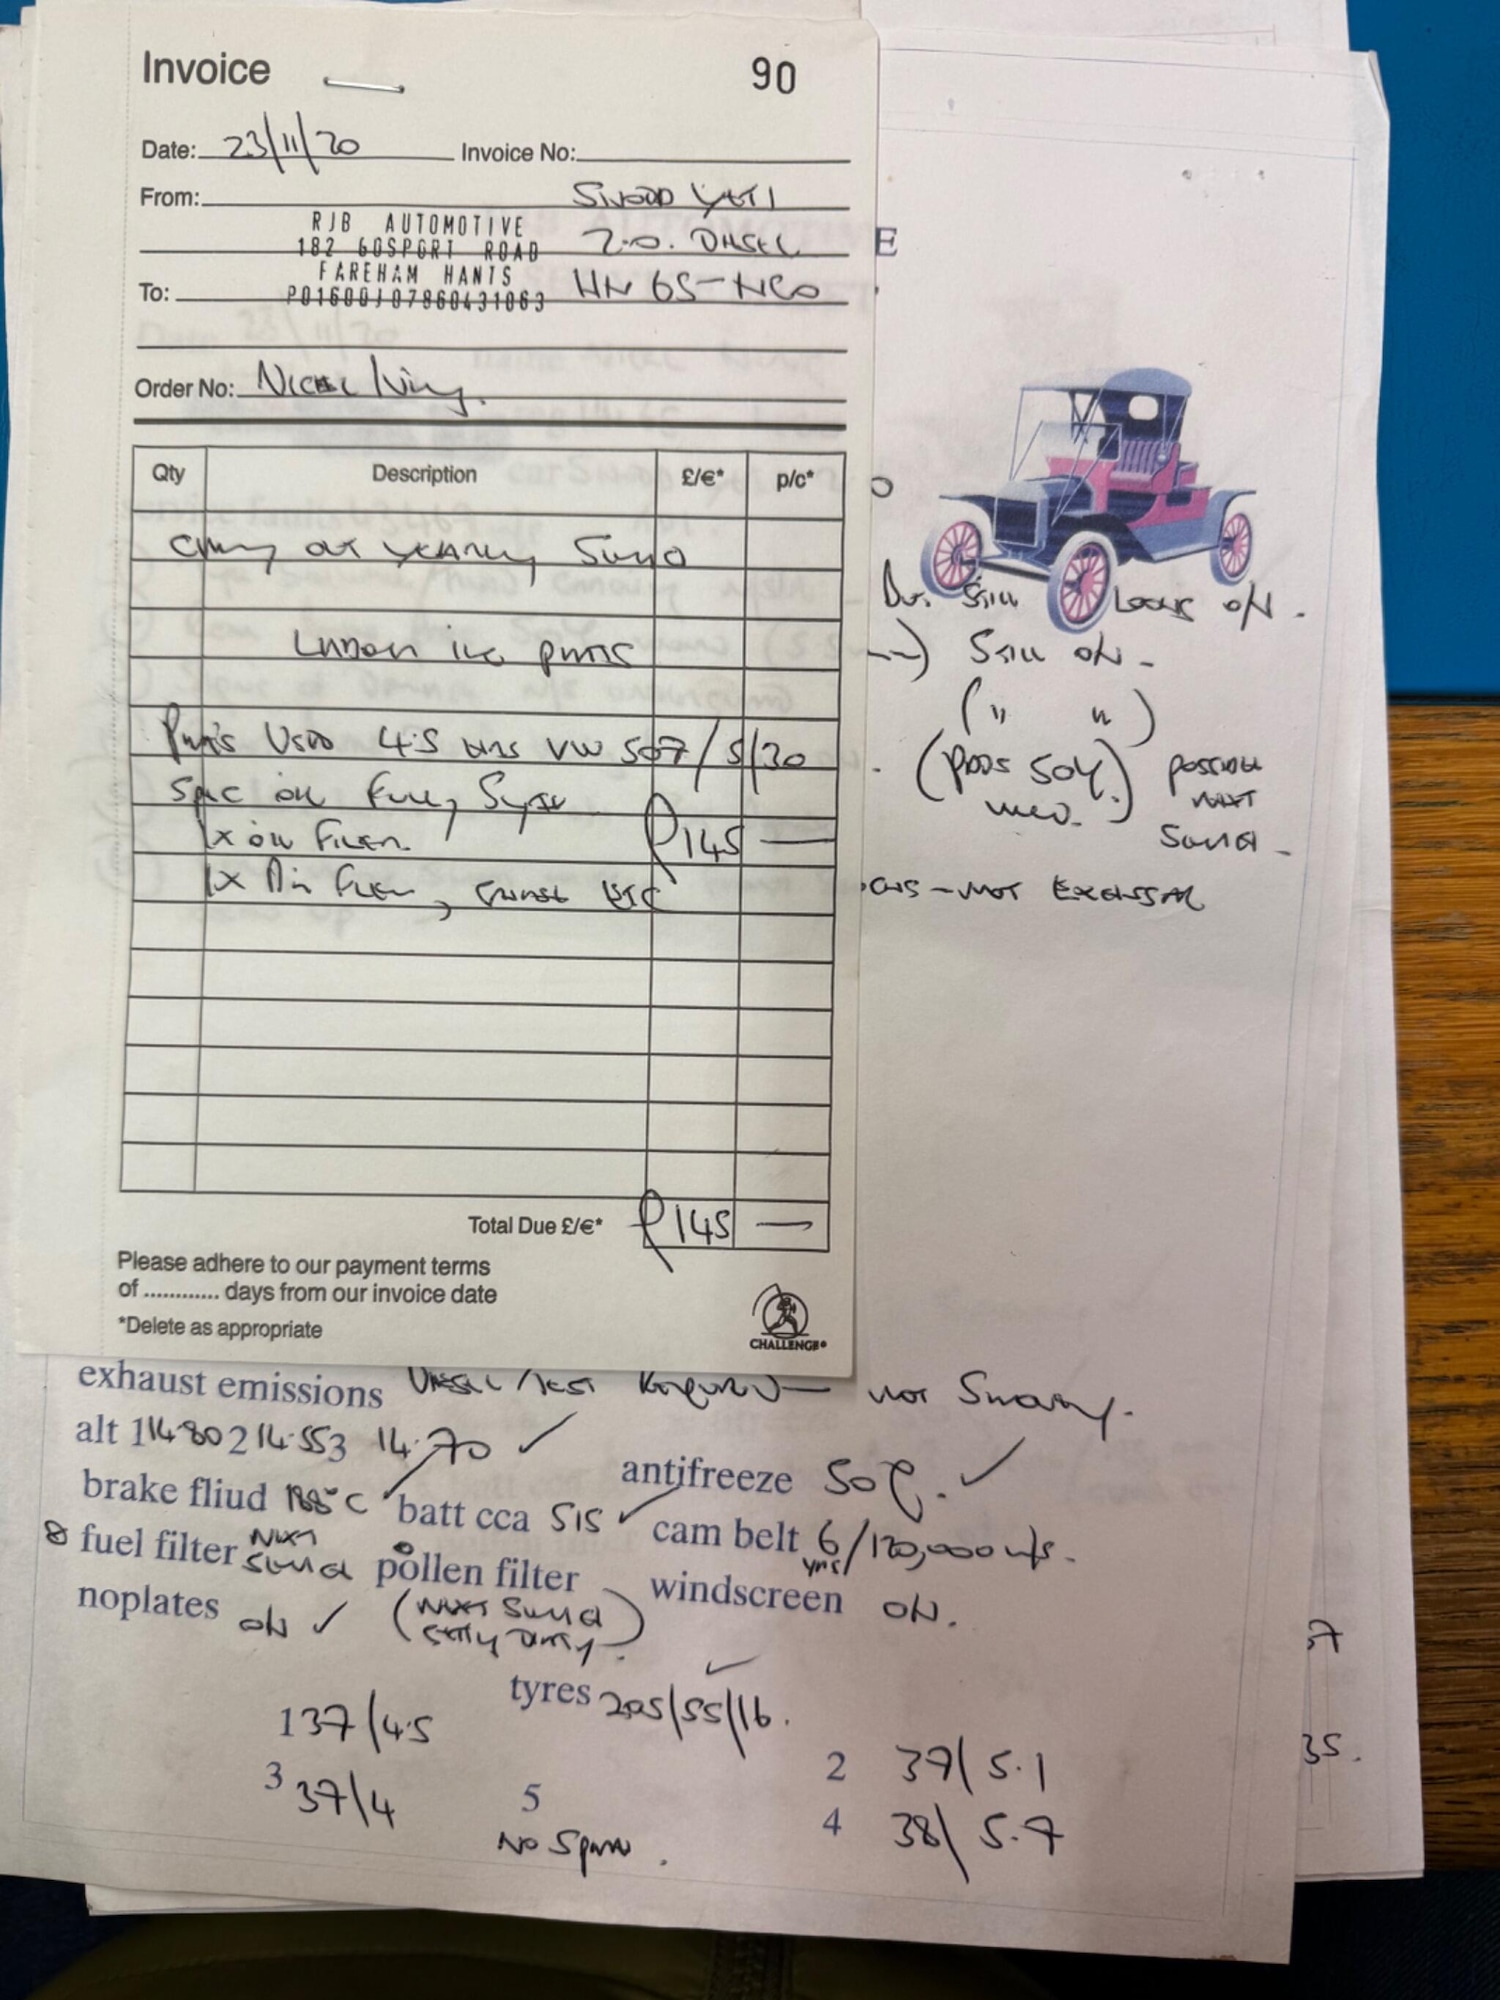 Invoice
90
Date: 23/11/20 Invoice No:
From: SKODA YETI
RJB AUTOMOTIVE
182 GOSPORT ROAD 2.0. DIESEL
FAREHAM HANTS
To: PO160 07860431063 HN 65-NCO
Order No: NIGEL
Qty Description £/€* p/c*
CARRY OUT YEARLY SERVICE
LABOUR INC PARTS
PARTS USED 4.5 LTRS VW 507/5/30
SPEC OIL FULLY SYNTH
1x OIL FILTER £145 —
1x AIR FILTER, GREASE ETC
Total Due £/€* £145 —
Please adhere to our payment terms
of ............ days from our invoice date
*Delete as appropriate
CHALLENGE
E
O
BUT STILL LOOKS OK.
STILL OK -
( " " )
(PADS 50% POSSIBLE
WEAR.) NEXT
SERVICE -
- NOT EXCESSIVE
exhaust emissions DIESEL TEST REQUIRED — NOT SMOKEY.
alt 1 14.80 2 14.55 3 14.70 ✓
brake fliud 188°C batt cca 515 ✓ antifreeze 50%. ✓
fuel filter NEXT SERVICE pollen filter cam belt 6 YRS/120,000 mls.
noplates OK ✓ (NEXT SERVICE windscreen OK.
SLIGHTLY DIRTY.)
tyres 205/55/16. ✓
1 37/4.5
2 37/5.1
3 37/4
5
4 38/5.7
NO SPARE.
35.